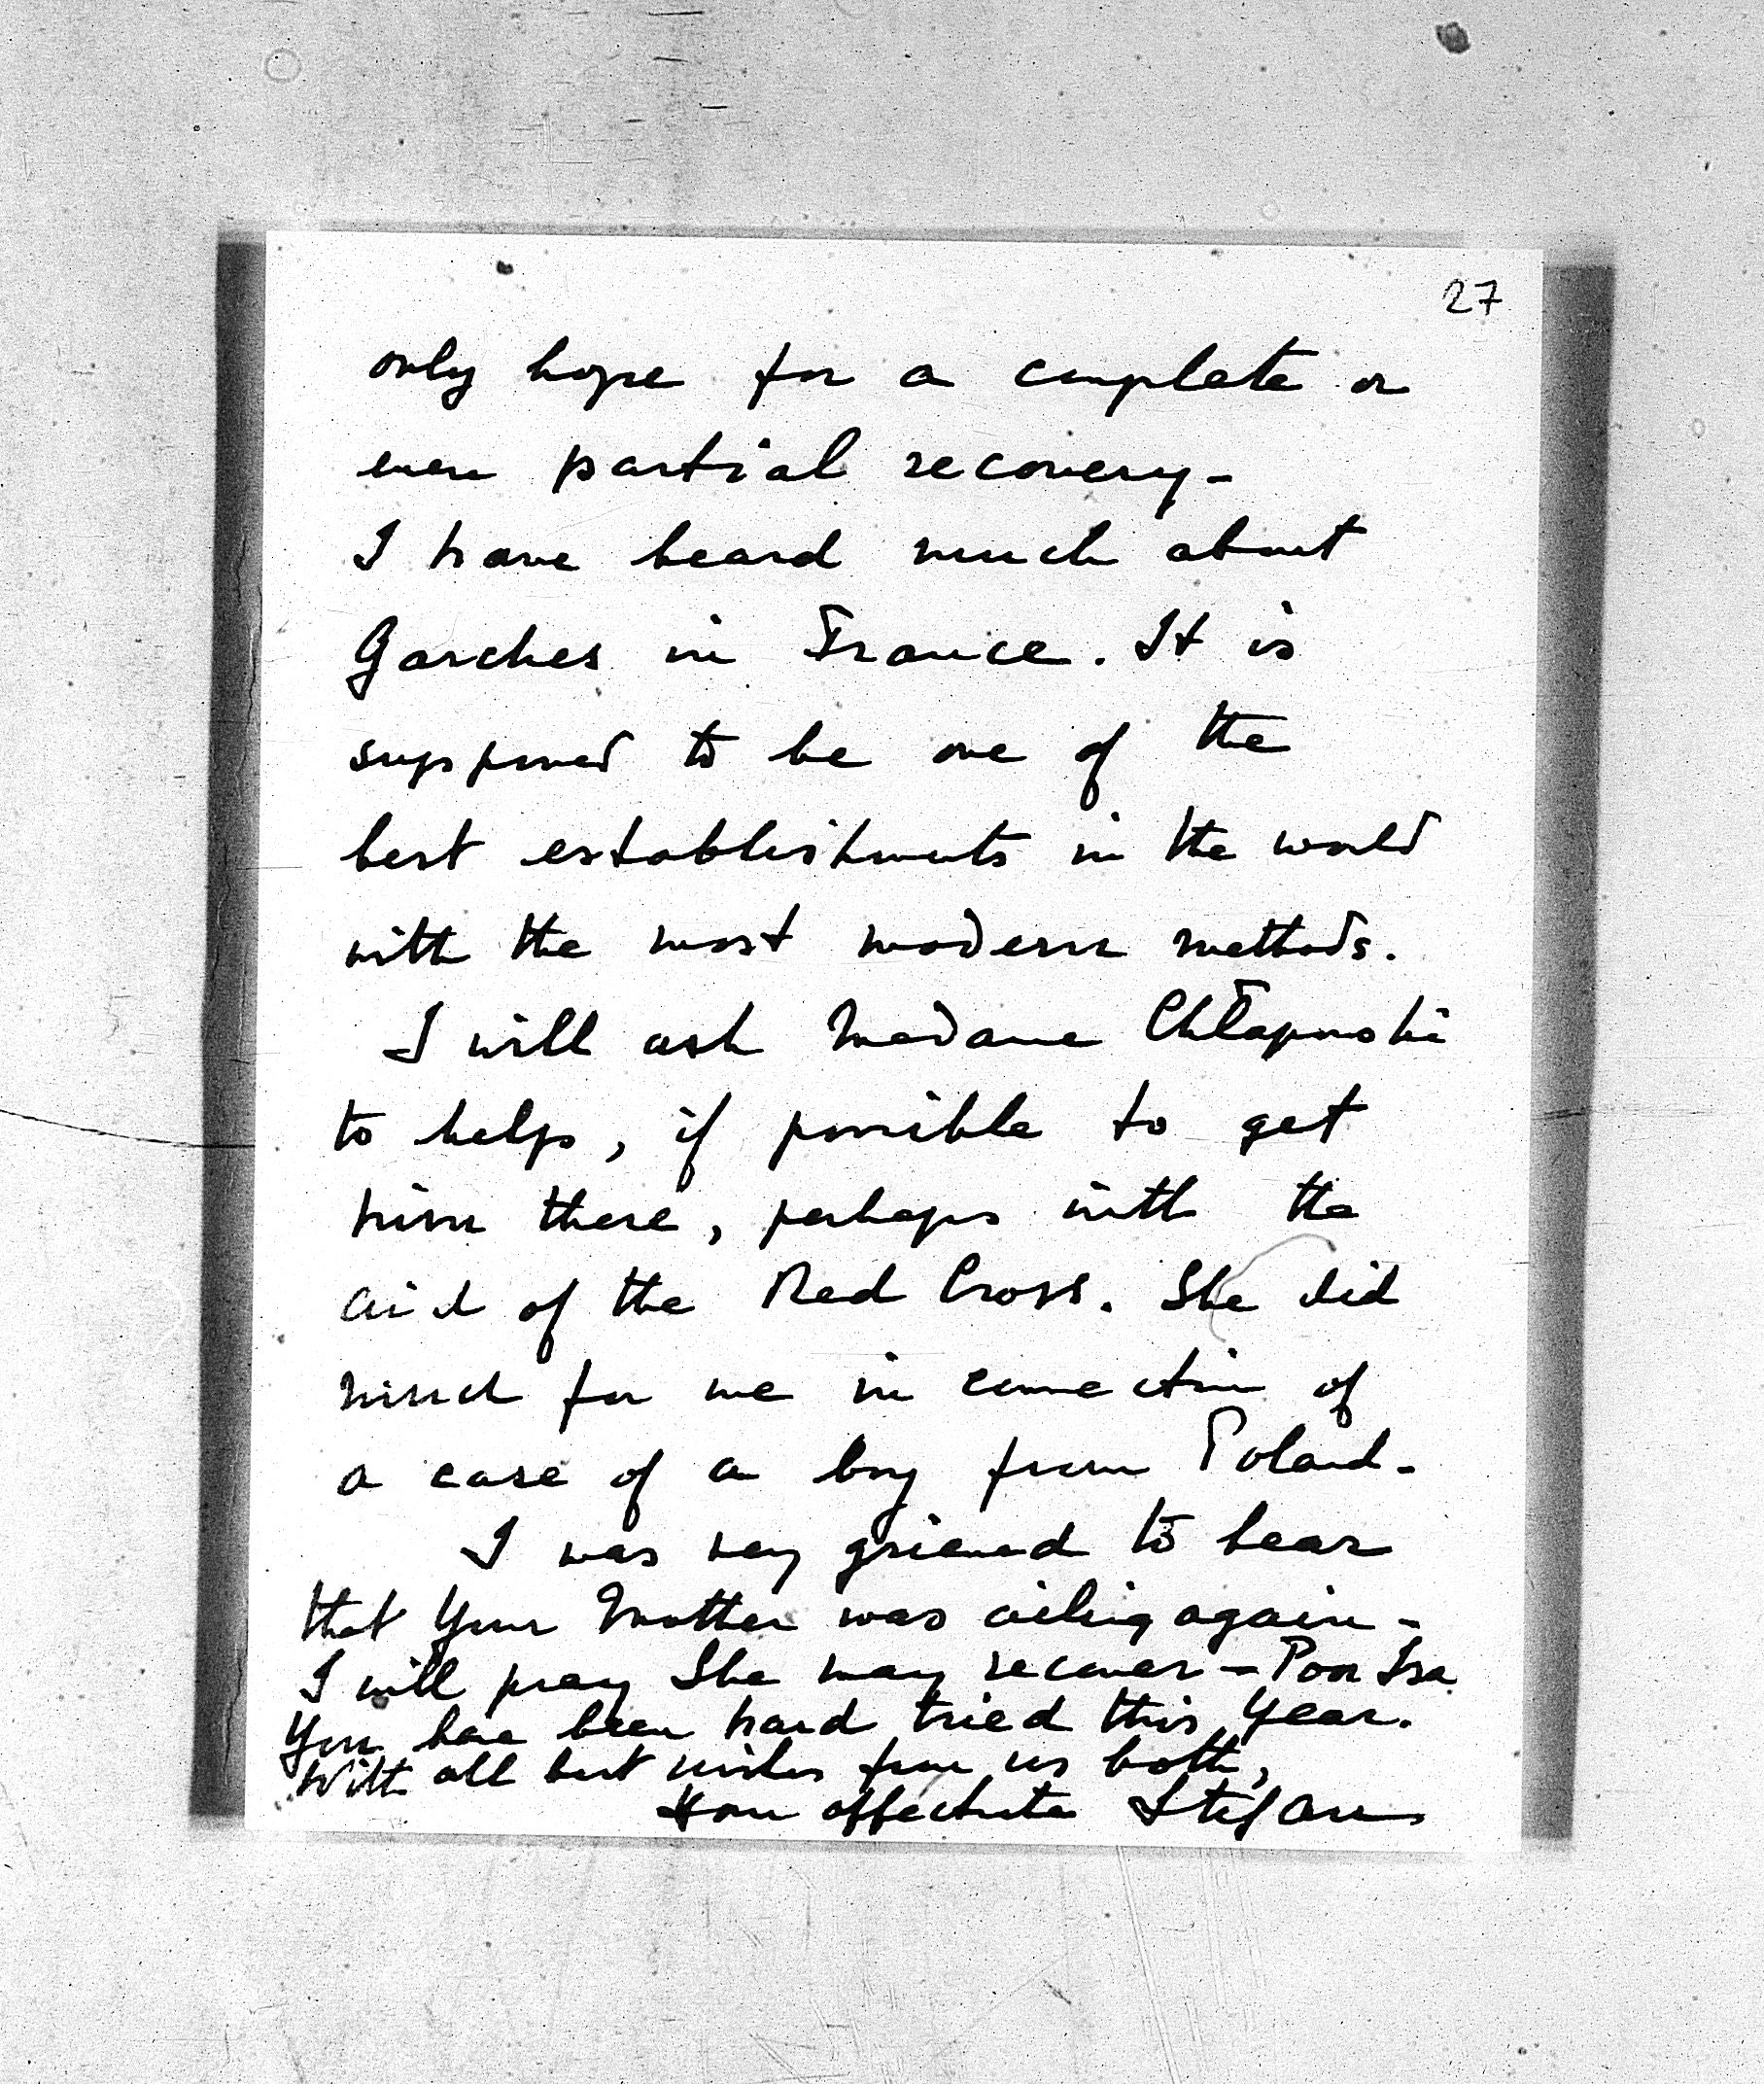 27
only hope for a complete or
even partial recovery -
I have heard much about
Garches in France. It is
supposed to be one of the
best establishments in the world
with the most modern methods.
I will ask Madame Chłapowski
to help, if possible to get
him there, perhaps with the
aid of the Red Cross. She did
much for me in connection of
a case of a boy from Poland -
I was very grieved to hear
that Your Mother was ailing again -
I will pray She may recover - Poor Isa
You have been hard tried this Year.
With all best wishes from us both,
Your affectionate Stefan